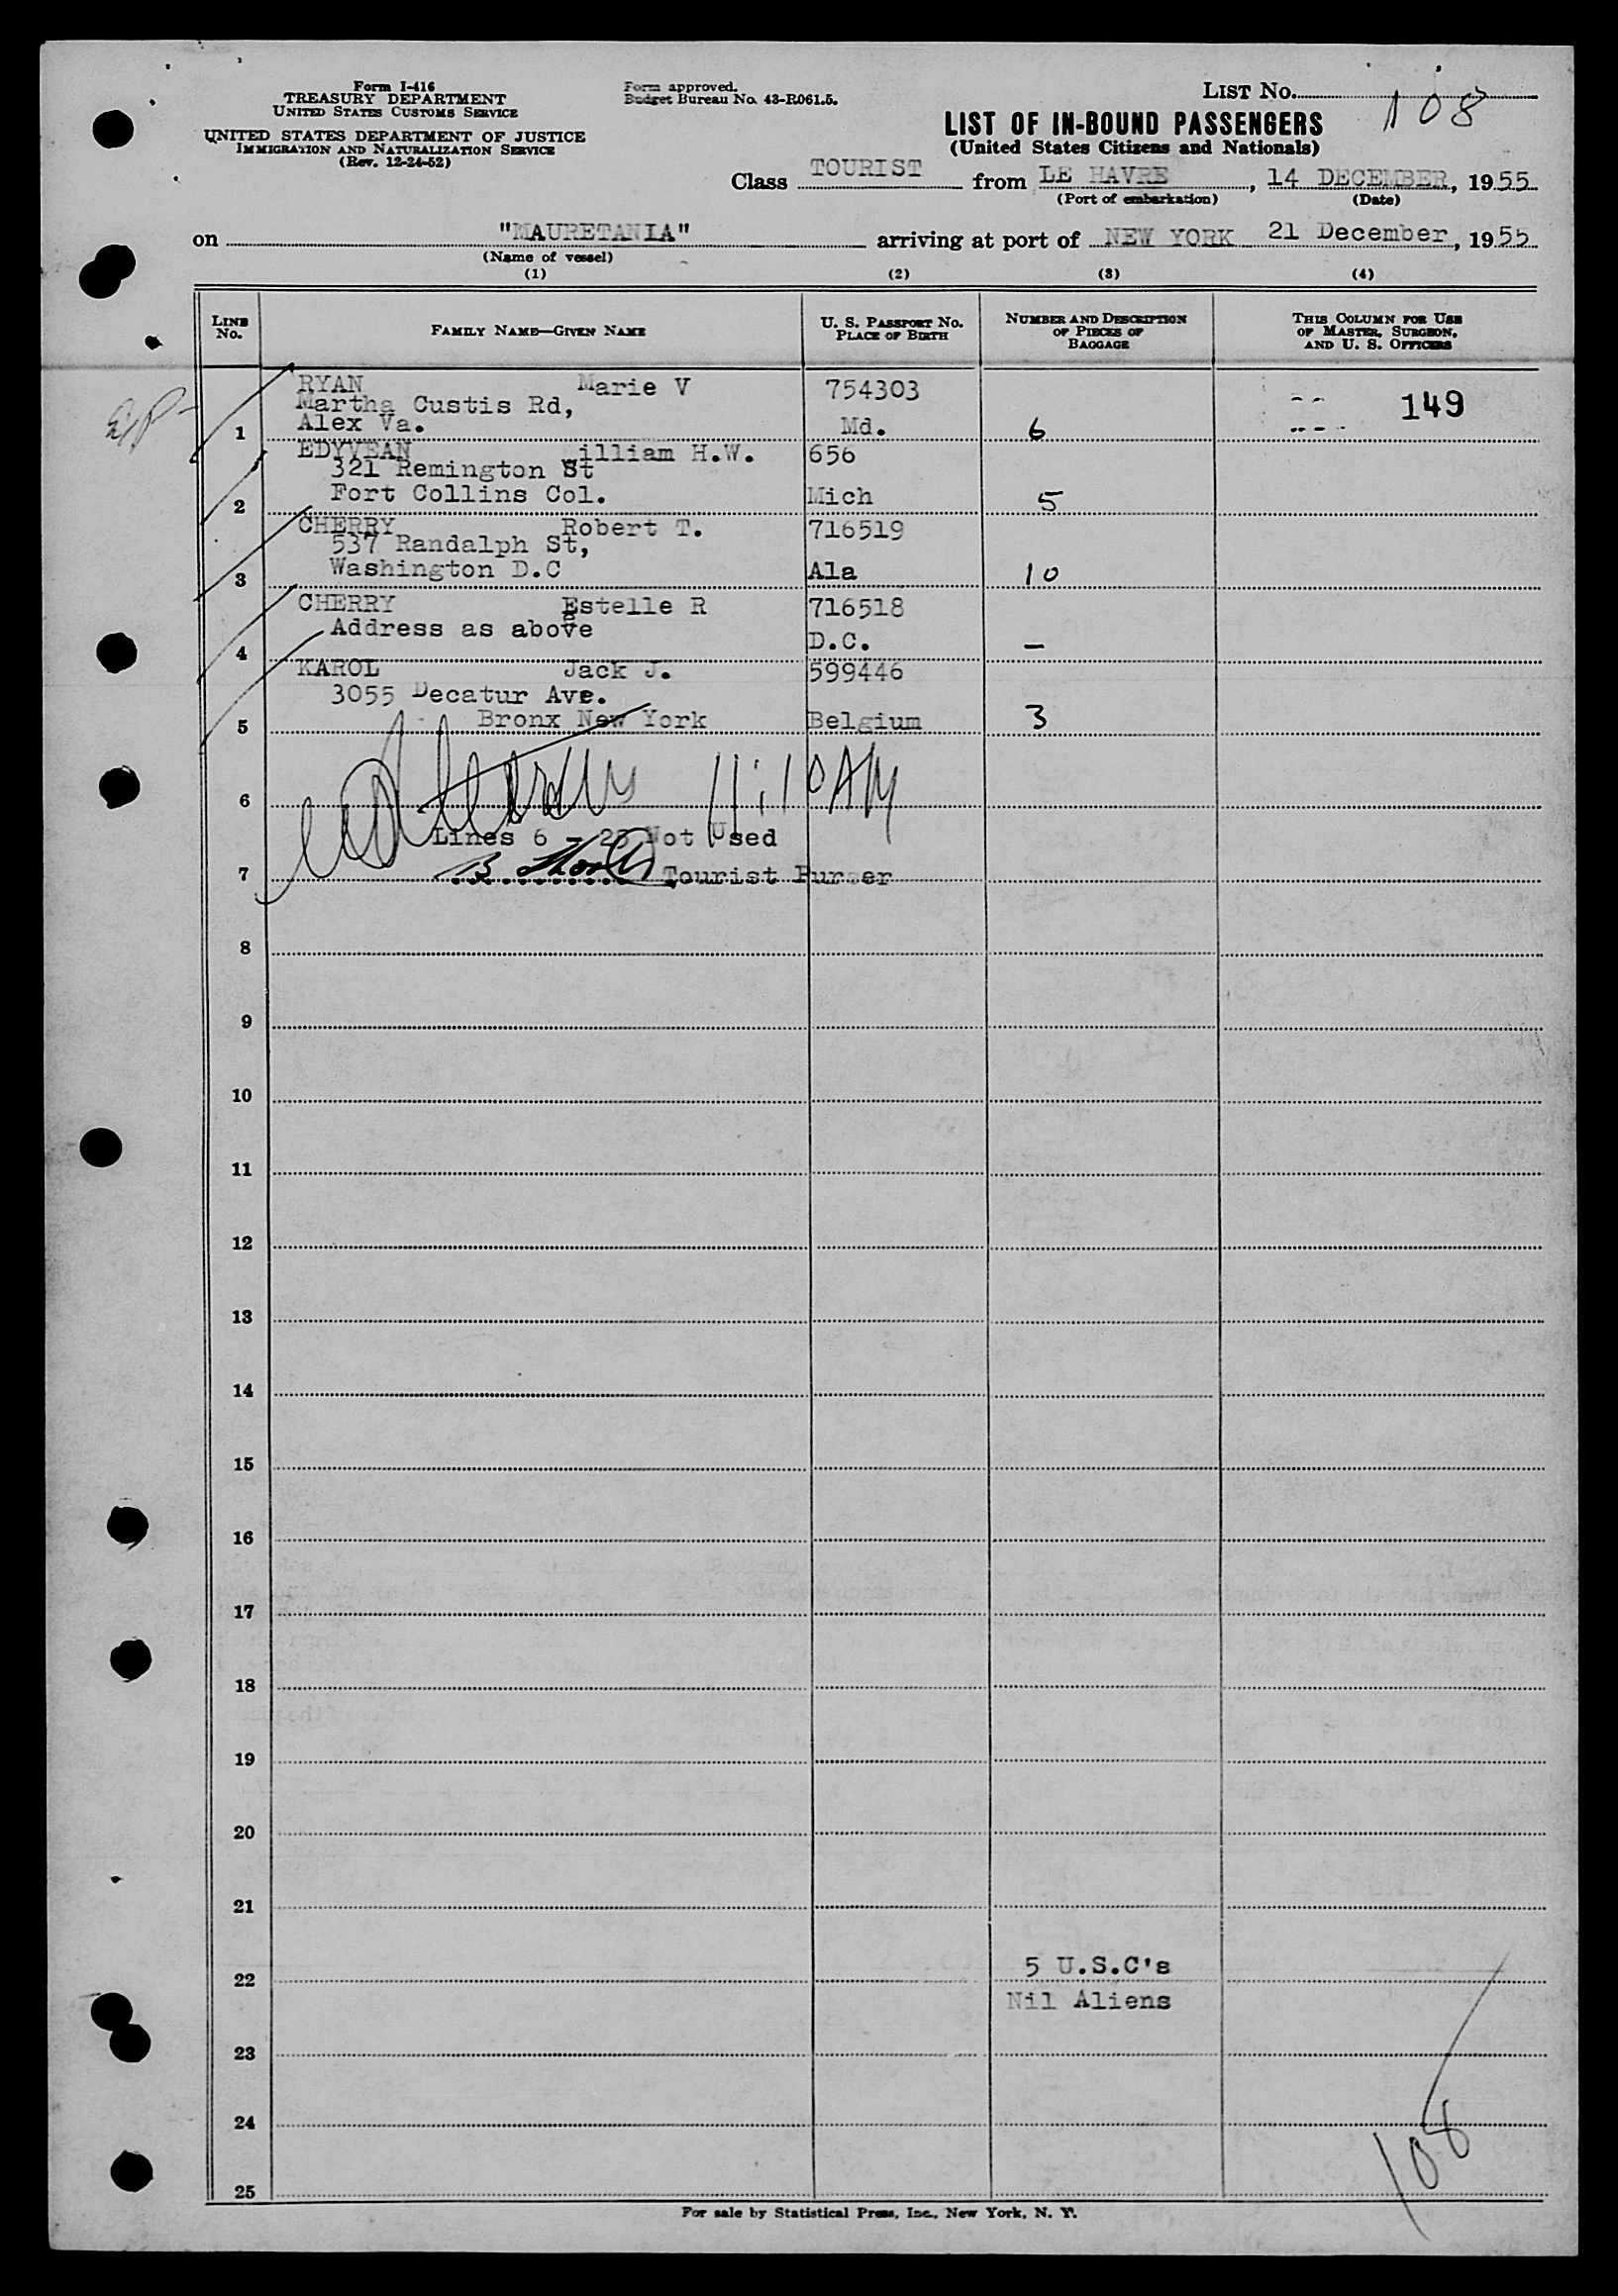 Form I-416
TREASURY DEPARTMENT
UNITED STATES CUSTOMS SERVICE
UNITED STATES DEPARTMENT OF JUSTICE
IMMIGRATION AND NATURALIZATION SERVICE
(Rev. 12-24-52)
Form approved.
Budget Bureau No. 43-R061.5.
LIST No. 108
LIST OF IN-BOUND PASSENGERS
(United States Citizens and Nationals)
Class TOURIST from LE HAVRE, 14 DECEMBER, 1955
(Port of embarkation) (Date)
on "MAURETANIA" arriving at port of NEW YORK 21 December, 1955
(Name of vessel)
(1) (2) (3) (4)
LINE No. FAMILY NAME—GIVEN NAME U. S. PASSPORT No. PLACE OF BIRTH NUMBER AND DESCRIPTION OF PIECES OF BAGGAGE THIS COLUMN FOR USE OF MASTER, SURGEON, AND U. S. OFFICERS
RYAN Marie V 754303 149
Martha Custis Rd,
1 Alex Va. Md. 6
EDYVEAN illiam H.W. 656
321 Remington St
2 Fort Collins Col. Mich 5
CHERRY Robert T. 716519
537 Randalph St,
3 Washington D.C Ala 10
CHERRY Estelle R 716518
Address as above
4 D.C. –
KAROL Jack J. 599446
3055 Decatur Ave.
5 Bronx New York Belgium 3
11:10 AM
6
Lines 6 - 25 Not Used
7 B. Tourist Purser
8
9
10
11
12
13
14
15
16
17
18
19
20
21
5 U.S.C's
22
Nil Aliens
23
24
108
25
For sale by Statistical Press, Inc., New York, N. Y.